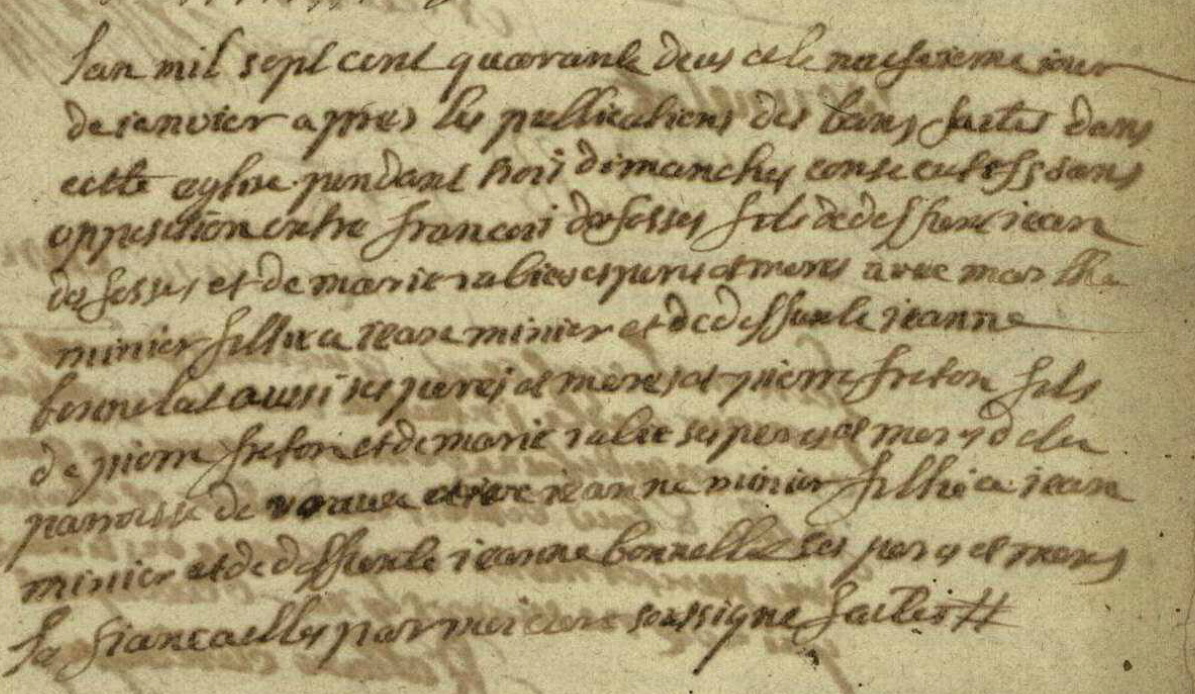 lan mil sept cent quarante deus et le neufsieme iour
de ienvier appres les publlications des bans faites dans
cette eglise pendant trois dimanches consecutifs sans
opposition entre francois desfosses fils de deffunt iean
desfosses et de marie rabies ses peres et meres avec marthe
minier fillie a iean minier et de deffunte ieanne
bonnelat aussi ses peres et meres et pierre freton fils
de pierre freton et de marie rabie ses peres et meres de la
parroisse de et ieanne minier fillie a iean
minier et de deffunte ieanne bonnelle ses peres et meres
le fiancailles par moi cure soussigne faites